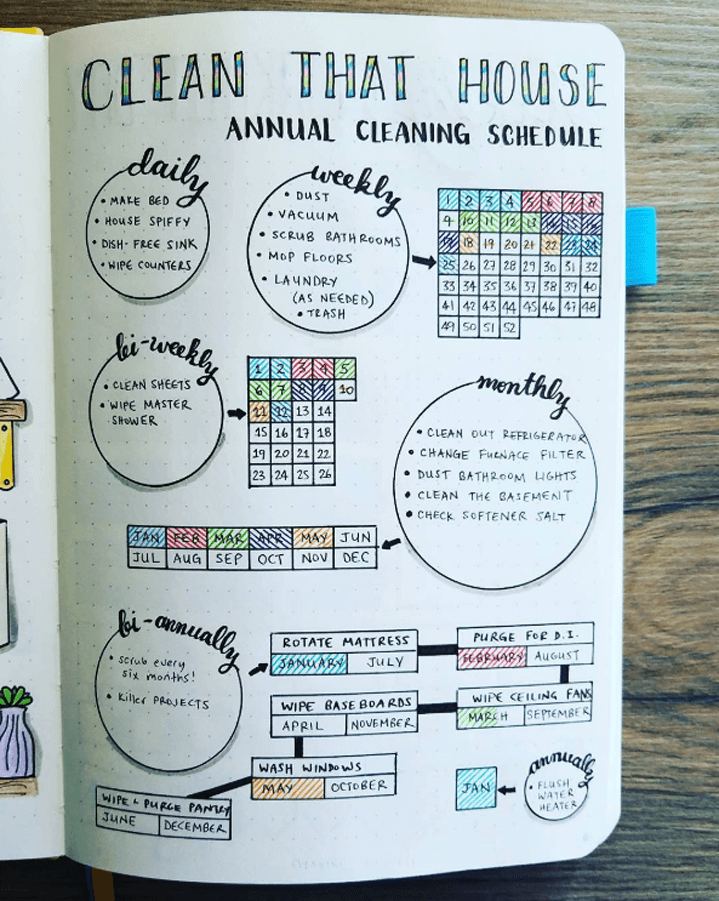 CLEAN THAT HOUSE
ANNUAL CLEANING SCHEDULE
daily
• MAKE BED
• HOUSE SPIFFY
• DISH-FREE SINK
• WIPE COUNTERS
weekly
• DUST
• VACUUM
• SCRUB BATHROOMS
• MOP FLOORS
• LAUNDRY
(AS NEEDED)
• TRASH
1 2 3 4 5 6 7 8
9 10 11 12 13
18 19 20 21 22 23 24
25 26 27 28 29 30 31 32
33 34 35 36 37 38 39 40
41 42 43 44 45 46 47 48
49 50 51 52
bi-weekly
• CLEAN SHEETS
• WIPE MASTER
SHOWER
1 2 3 4 5
6 7 8 9 10
11 12 13 14
15 16 17 18
19 20 21 22
23 24 25 26
monthly
• CLEAN OUT REFRIGERATOR
• CHANGE FURNACE FILTER
• DUST BATHROOM LIGHTS
• CLEAN THE BASEMENT
• CHECK SOFTENER SALT
JAN FEB MAR APR MAY JUN
JUL AUG SEP OCT NOV DEC
bi-annually
• scrub every
six months!
• Killer PROJECTS
ROTATE MATTRESS
JANUARY JULY
PURGE FOR D.I.
FEBRUARY AUGUST
WIPE CEILING FANS
MARCH SEPTEMBER
WIPE BASEBOARDS
APRIL NOVEMBER
WASH WINDOWS
MAY OCTOBER
WIPE & PURGE PANTRY
JUNE DECEMBER
annually
• FLUSH
WATER
HEATER
JAN